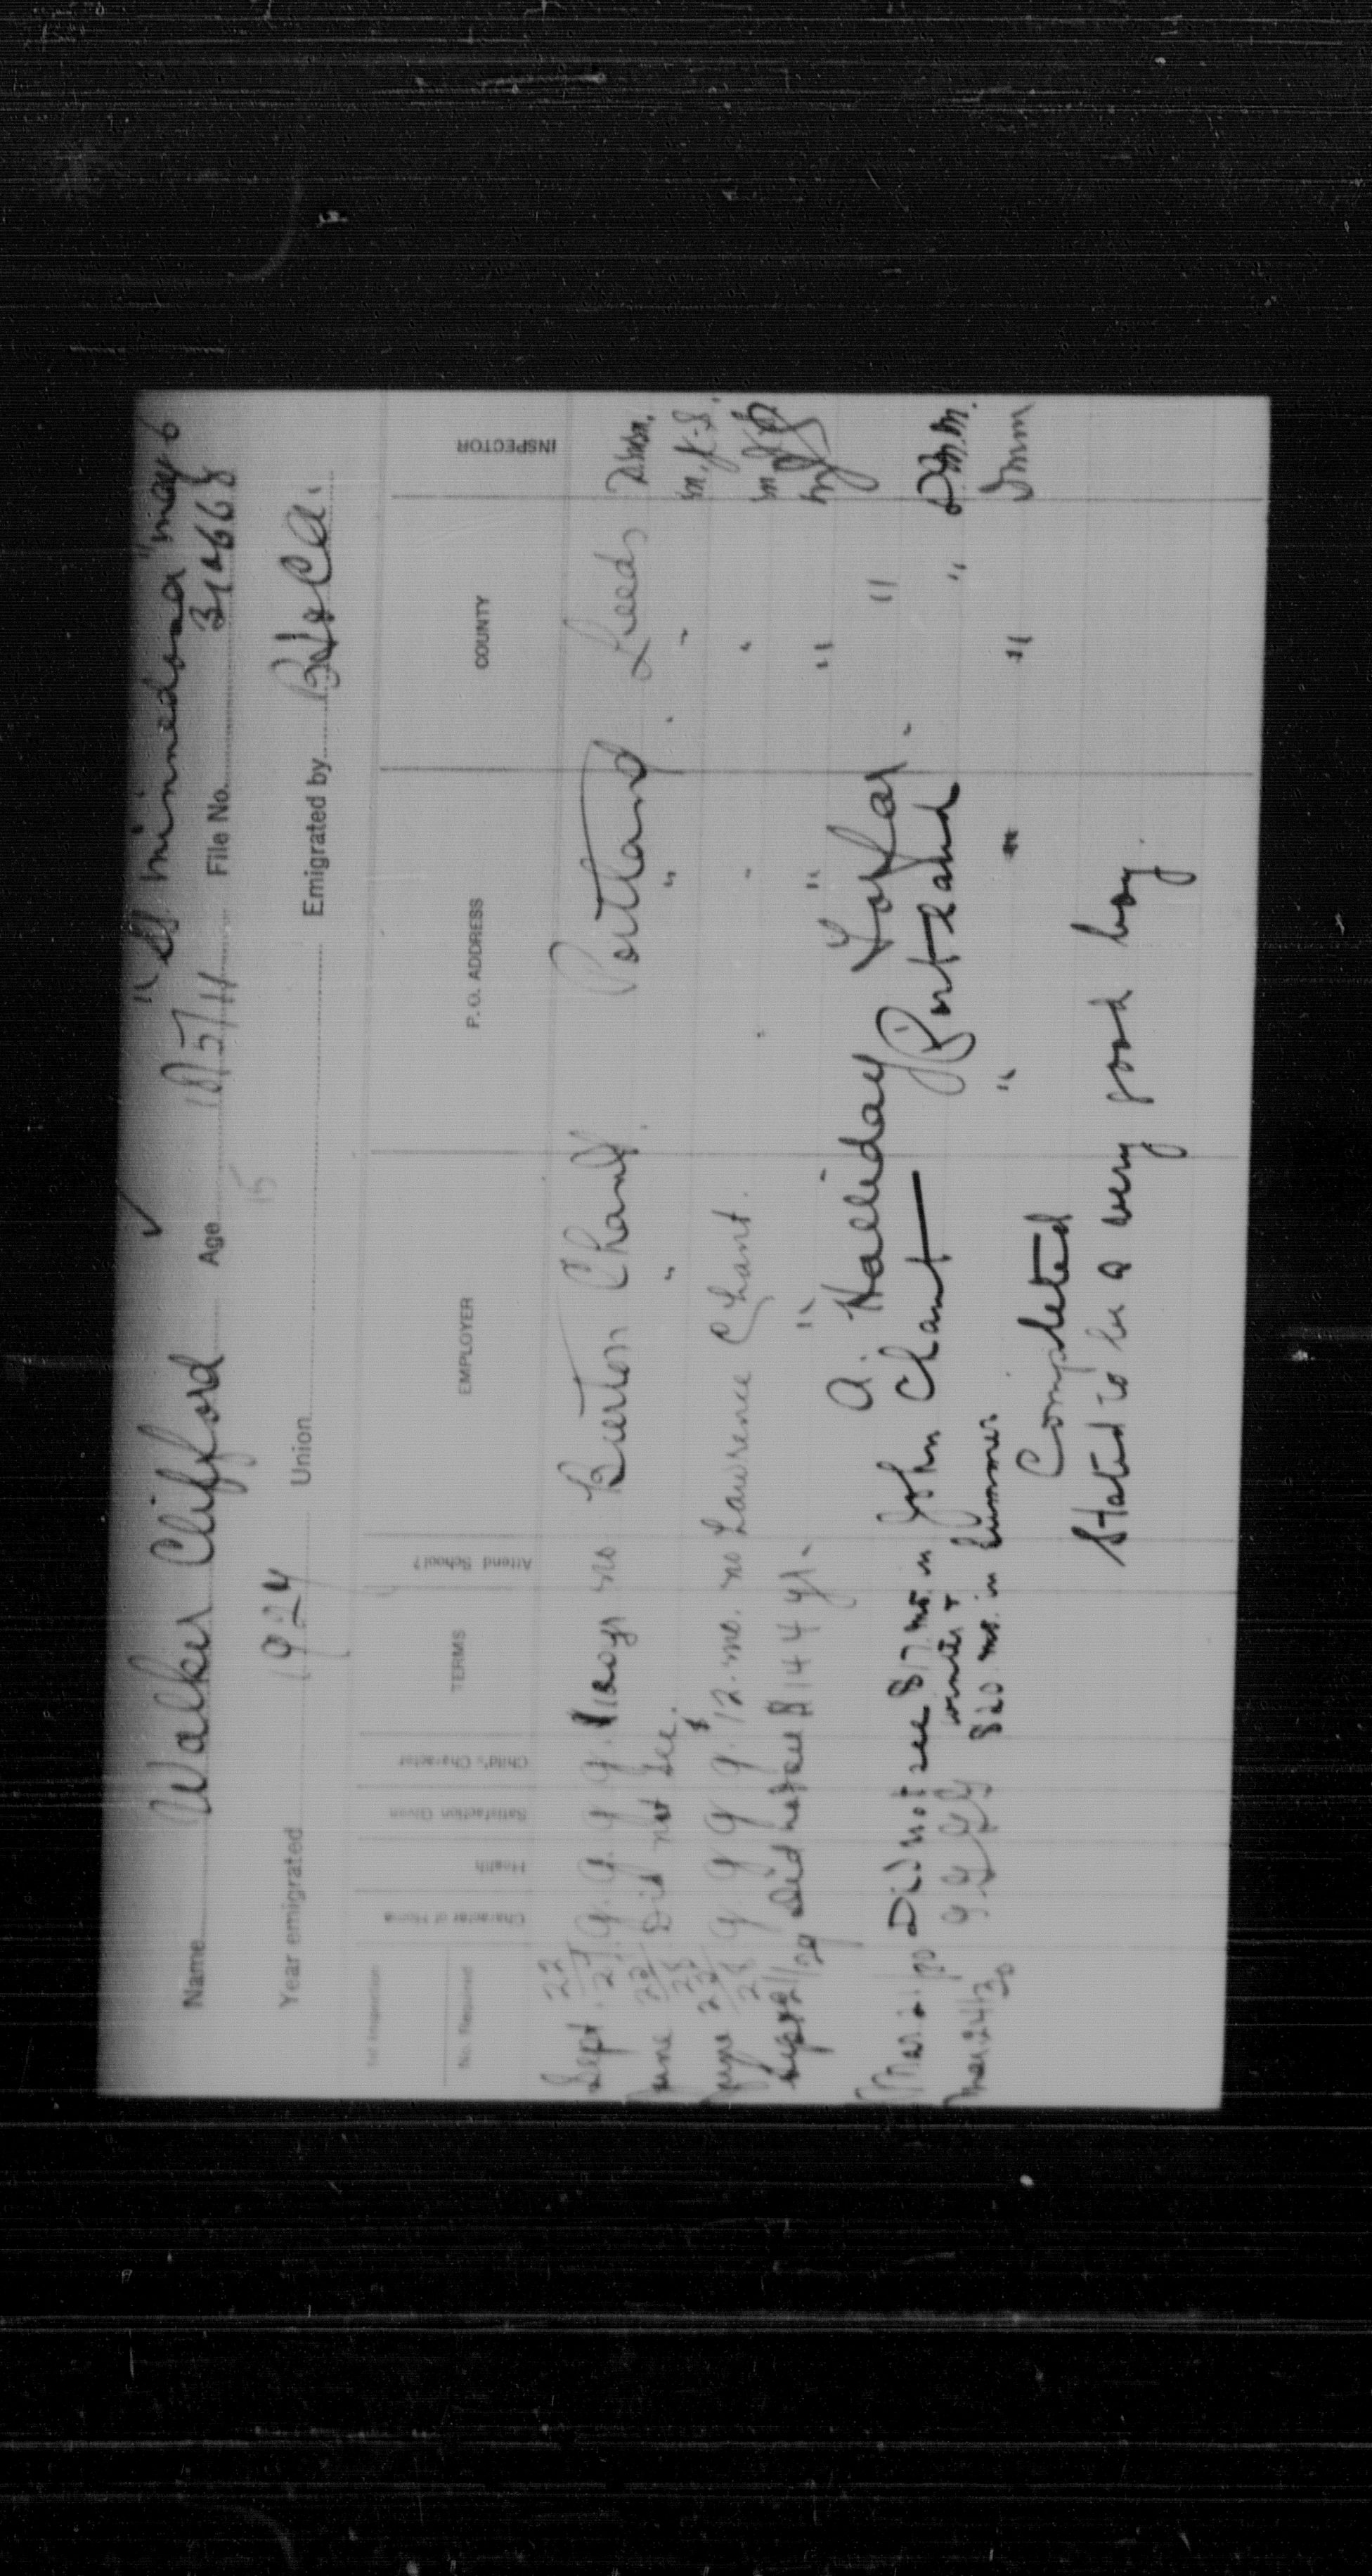 " SS minnedosa" may 6
Name Walker Clifford Age File No.
15
Year emigrated 1924 Union Emigrated by
1st Inspection
No. Required Character of Home Health Satisfaction Given Child's Character TERMS Attend School? EMPLOYER P. O. ADDRESS COUNTY INSPECTOR
Sept. 22/27 g. g. g. g. no Burton Chant. Portland Leeds
June 22/28 Did not see. " " "
June 22/28 g g g g. 12. mo. no Lawrence Chant. " "
/29 Did not see $144 yr. " " "
A. Halliday "
Mar 21/30 Did not see $17 mo. in John Chant — Portland " D.M.M.
winter &
Mar 24/30 g g g g $20 mo. in summer " " "
Completed
Stated to be a very good boy.